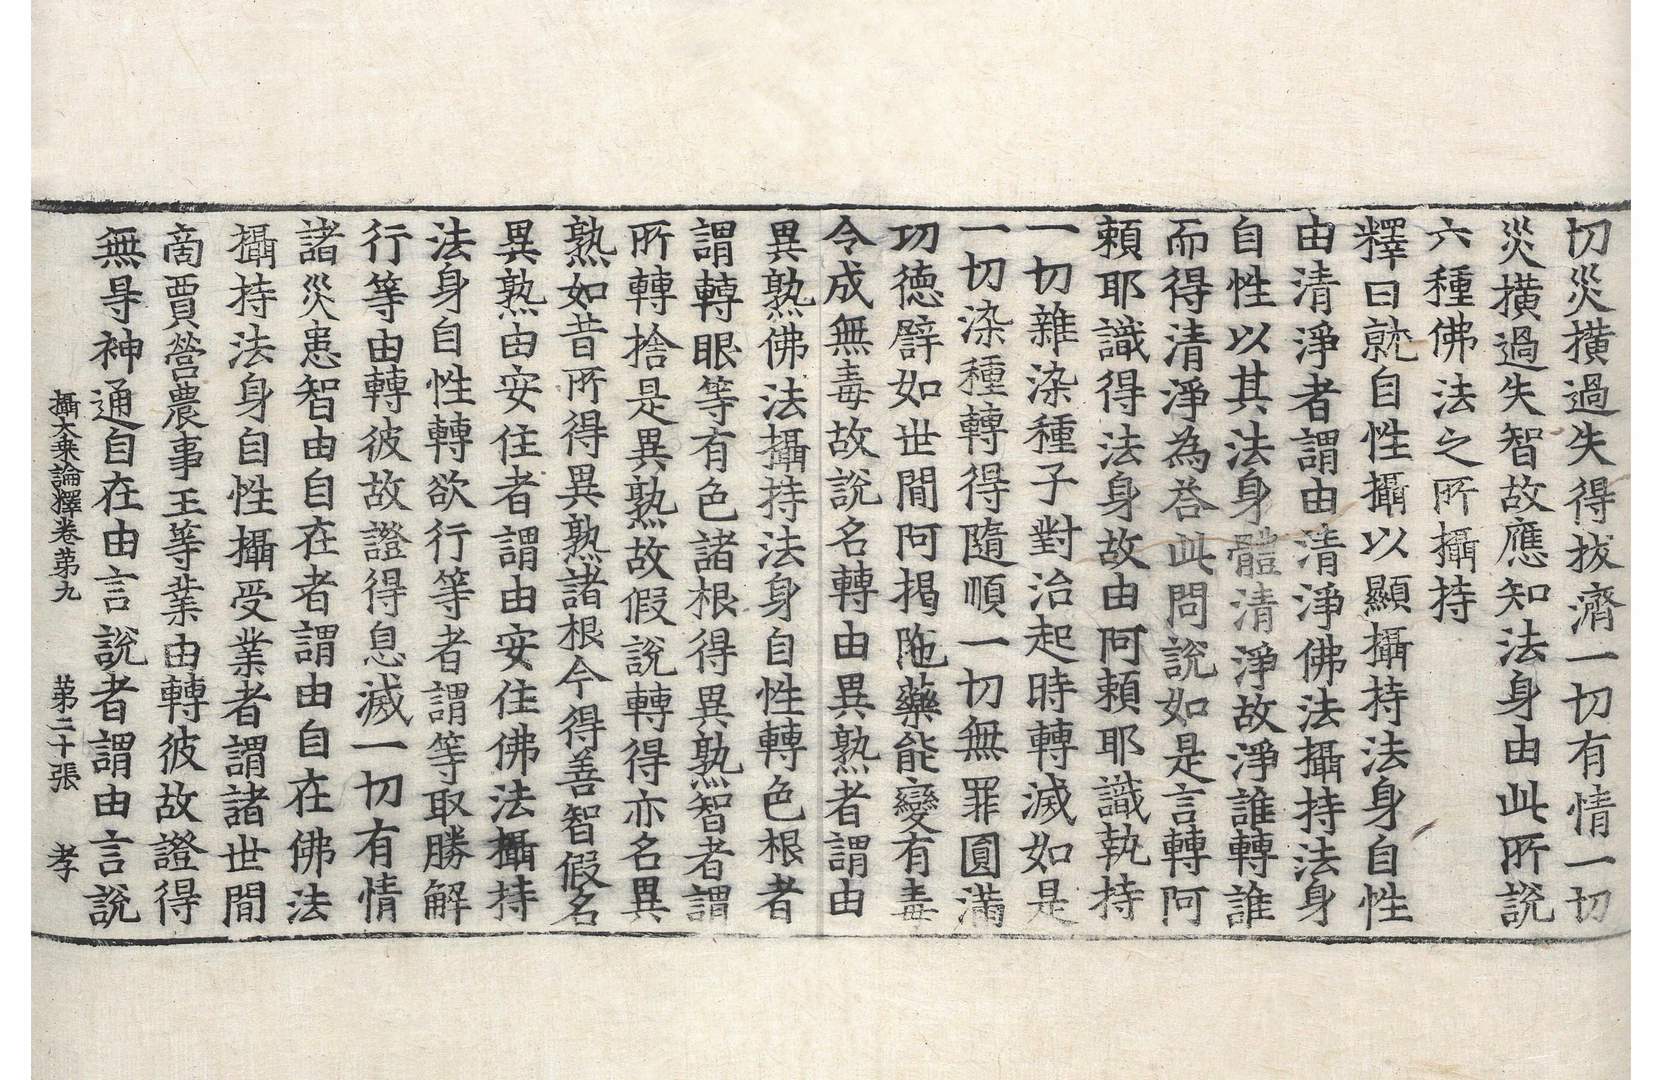 切災撗過失得拔濟一切有情一切
災撗過失智故應知法身由此所說
六種佛法之所攝持
釋曰就自性攝以顯攝持法身自性
由清淨者謂由清淨佛法攝持法身
自性以其法身體清淨故淨誰轉誰
而得清淨為荅此問說如是言轉阿
頼耶識得法身故由阿頼耶識執持
一切雜染種子對治起時轉滅如是
一切染種轉得隨順一切無罪圓滿
功德譬如世間阿揭陁藥能變有毒
令成無毒故說名轉由異熟者謂由
異熟佛法攝持法身自性轉色根者
謂轉眼等有色諸根得異熟智者謂
所轉捨是異熟故假說轉得亦名異
熟如昔所得異熟諸根今得善智假名
異熟由安住者謂由安住佛法攝持
法身自性轉欲行等者謂等取勝解
行等由轉彼故證得息滅一切有情
諸災患智由自在者謂由自在佛法
攝持法身自性攝受業者謂諸世間
啇賈營農事王等業由轉彼故證得
無㝵神通自在由言說者謂由言說
攝大乗論釋卷苐九　苐二十張　孝